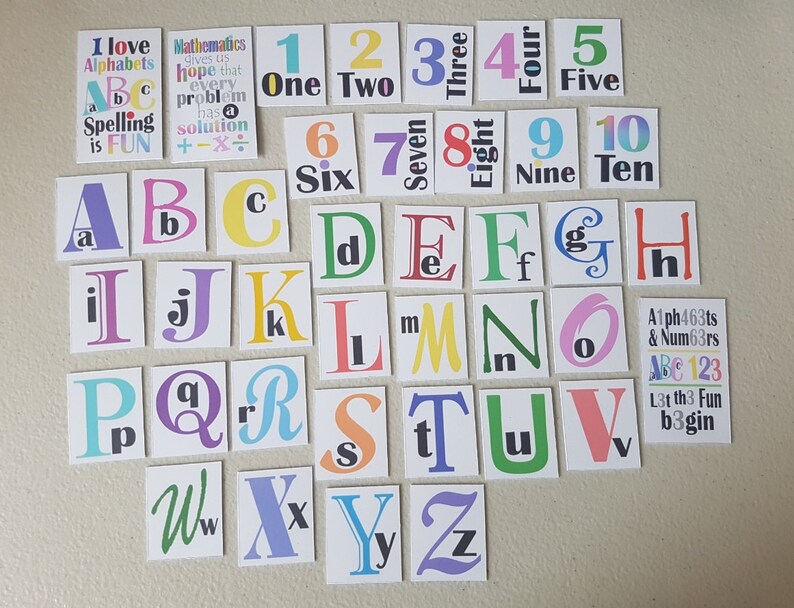 I love
Alphabets
ABC
abc
Spelling
is FUN
Mathematics
gives us
hope that
every
problem
has a
solution
+ - x ÷
1
One
2
Two
3
Three
4
Four
5
Five
6
Six
7
Seven
8
Eight
9
Nine
10
Ten
A a
B b
C c
D d
E e
F f
G g
H h
I i
J j
K k
L l
M m
N n
O o
A1ph463ts
& Num63rs
ABC 123
abc
L3t th3 Fun
b3gin
P p
Q q
R r
S s
T t
U
V v
W w
X x
Y y
Z z